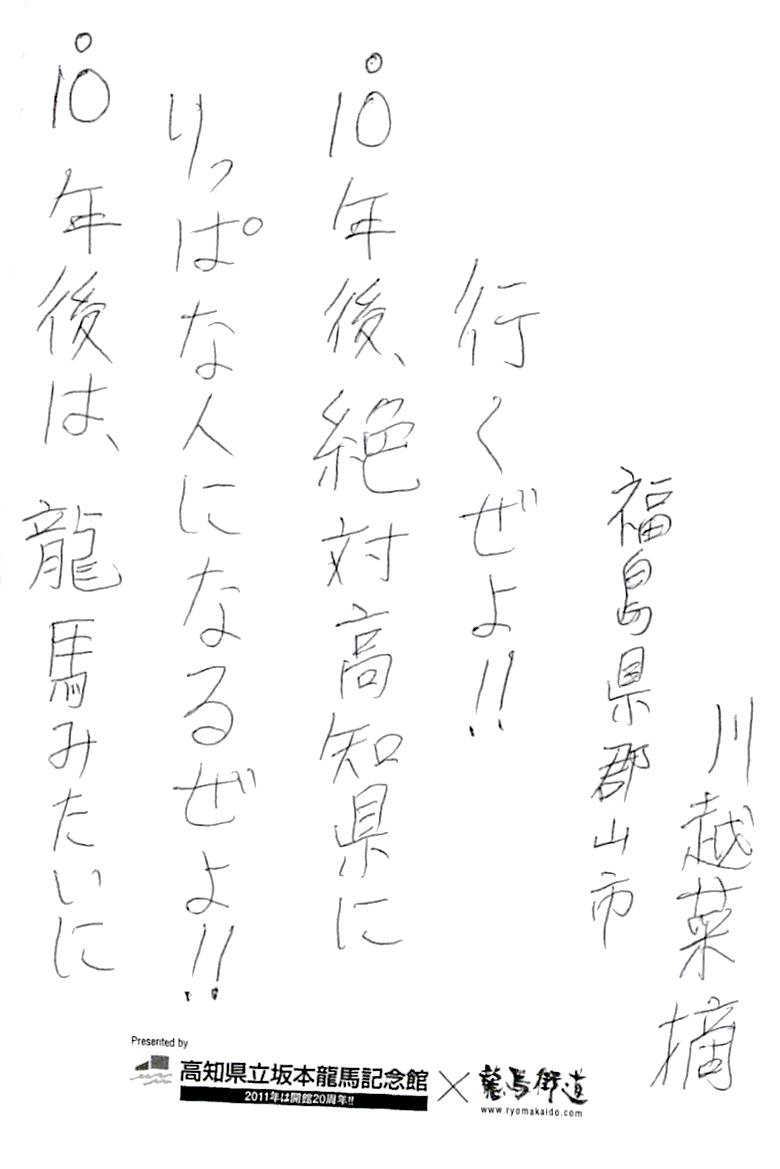 ○10年後は、龍馬みたいに
りっぱな人になるぜよ!!
○10年後、絶対高知県に
行くぜよ!!
福島県郡山市
川越菜摘
Presented by
高知県立坂本龍馬記念館×龍馬街道
2011年は開館20周年!!
www.ryomakaido.com